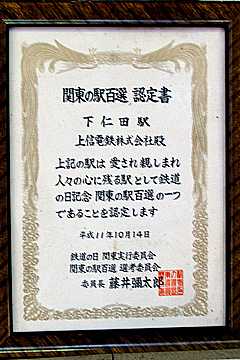 関東の駅百選 認定書
下仁田駅
上信電鉄株式会社殿
上記の駅は 愛され親しまれ
人々の心に残る駅として鉄道
の日記念 関東の駅百選の一つ
であることを認定します
平成11年10月14日
鉄道の日 関東実行委員会
関東の駅百選 選考委員会
委員長 藤井彌太郎